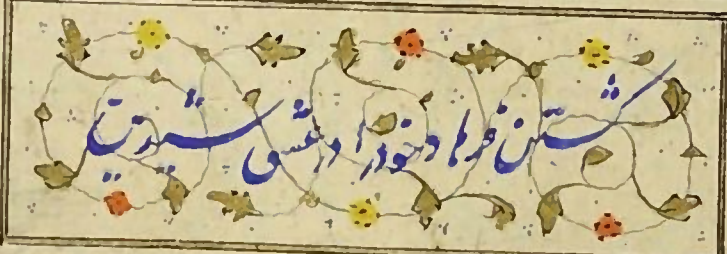 کشتن فرهاد خود را در عشق شیرین